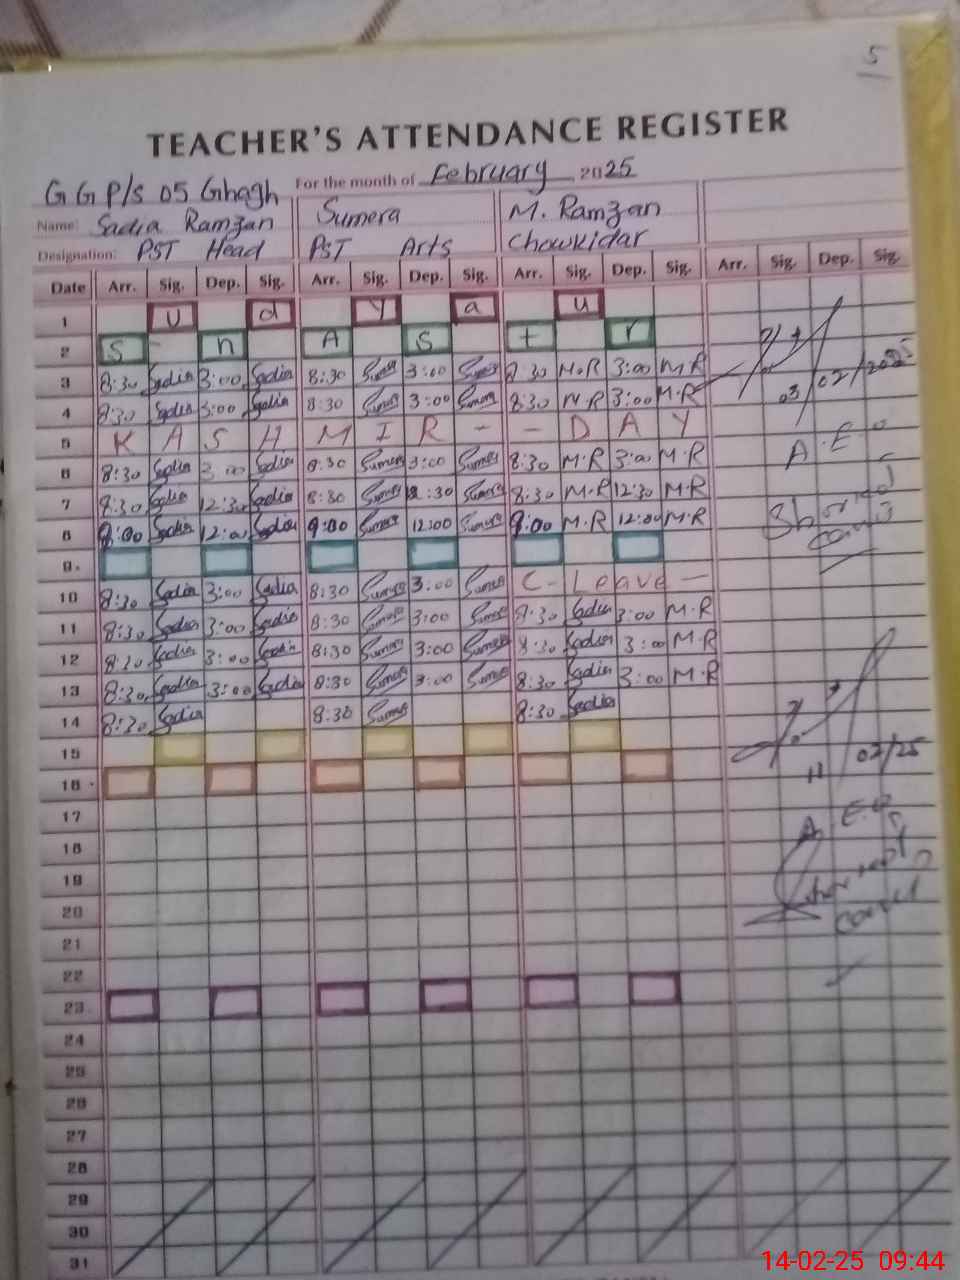 5
TEACHER'S ATTENDANCE REGISTER
G G P/S 05 Ghagh For the month of February 2025
Name: Sadia Ramzan Sumera M. Ramzan
Designation: PST Head PST Arts Chowkidar
Date Arr. Sig. Dep. Sig. Arr. Sig. Dep. Sig. Arr. Sig. Dep. Sig. Arr. Sig. Dep. Sig.
1 U d y a u
2 S - n A S t r
3 8:30 Sadia 3:00 Sadia 8:30 Sumera 3:00 Sumera 8:30 M.R 3:00 M.R
4 8:30 Sadia 3:00 Sadia 8:30 Sumera 3:00 Sumera 8:30 M.R 3:00 M.R 03/02/2025
5 K A S H M I R - - D A Y
6 8:30 Sadia 3:00 Sadia 8:30 Sumera 3:00 Sumera 8:30 M.R 3:00 M.R A.E.O
7 8:30 Sadia 12:30 Sadia 8:30 Sumera 12:30 Sumera 8:30 M.R 12:30 M.R
8 9:00 Sadia 12:00 Sadia 9:00 Sumera 12:00 Sumera 9:00 M.R 12:00 M.R
9
10 8:30 Sadia 3:00 Sadia 8:30 Sumera 3:00 Sumera C - Leave -
11 8:30 Sadia 3:00 Sadia 8:30 Sumera 3:00 Sumera 8:30 Sadia 3:00 M.R
12 8:30 Sadia 3:00 Sadia 8:30 Sumera 3:00 Sumera 8:30 Sadia 3:00 M.R
13 8:30 Sadia 3:00 Sadia 8:30 Sumera 3:00 Sumera 8:30 Sadia 3:00 M.R
14 8:30 Sadia 8:30 Sumera 8:30 Sadia
15
16 11 02/25
17
18 A.E.O
19
20
21
22
23
24
25
26
27
28
29
30
31
14-02-25 09:44